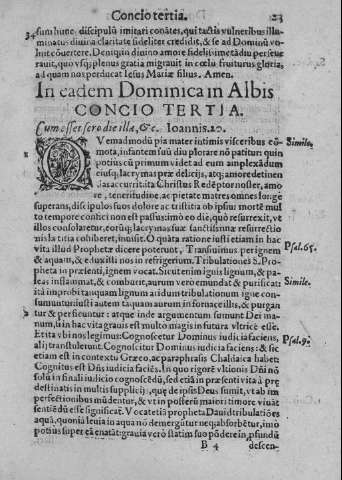 Concio tertia.
23
34
sum hunc discipulũ imitari conātes, qui tactis vulneribus illu-
minatus diuina claritate fideliter credidit, & se ad Dominũ vo-
luit cõuertere. Deniq; ito diuino amore fideliter metā diu perseue
rauit, quo vsq; plenus gratia migrauit in cœlū fruiturus gloria,
ad quam nos perducat Iesus Mariæ filius. Amen.
In eadem Dominica in Albis
CONCIO TERTIA.
Cum esset sero die illa, &c. Ioannis.20.
QVemadmodũ pia mater intimis visceribus cō-
Simile.
mota, infantem suũ diu plorare nō patitur quin
potius cũ primum videt ad eum amplexādum
eiusq; lacrymas præ delicijs, atq; amore detinen
das accurrit: ita Christus Redēptor noster, amo-
re, teneritudine, ac pietate matres omnes longe
superans, discipulos suos dolore ac tristitia ob ipsius mortē mul
to tempore contici non est passus: imò eo die, quo resurrexit, vt
illos consolaretur, eorūq; lacrymas suæ sanctissimæ resurrectio
nis lætitia cohiberet, inuisit. O quāta ratione iusti etiam in hac
vita illud Prophetæ dicere poterunt, Transiuimus per ignem
Psal.65.
& aquam, & eduxisti nos in refrigerium. Tribulationes S. Pro-
pheta in præsenti, ignem vocat. Sicut enim ignis lignum, & pa-
leas inflammat, & comburit, aurum vero emundat & purificat:
Simile.
ita improbi tanquam lignum aridum tribulationum igne con-
sumuntur: iusti autem tāquam aurum in fornace illis, & purgan
tur & perficiuntur: atque inde argumentum sumunt Dei ma-
num, si in hac vita grauis est multo magis in futura vltrice esse.
Et ita vbi nos legimus: Cognoscetur Dominus iudicia faciens,
Psal.9.
alij transtulerunt. Cognoscitur Dominus iudicia faciens: & sic
etiam est in contextu Græco, ac paraphrasis Chaldaica habet:
Cognitus est Dñs iudicia faciēs. In quo rigorē vltionis Dñi nō
solū in finali iudicio cognoscēdũ, sed etiā in præsenti vita à præ
destinatis in multis supplicij s, quę de ipsis Deus sumit, vt ab im
perfectionibus mūdentur, & vt in posterū maiori timore viuāt
sentiēdũ esse significat. Vocat etiā propheta Dauid tribulatiões
aquā, quoniā leuia in aqua nō demergūtur neq; absorbētur, imò
potius super eā enatāt: grauia verò statim suo pōdere in, psundū
B 4
descen-